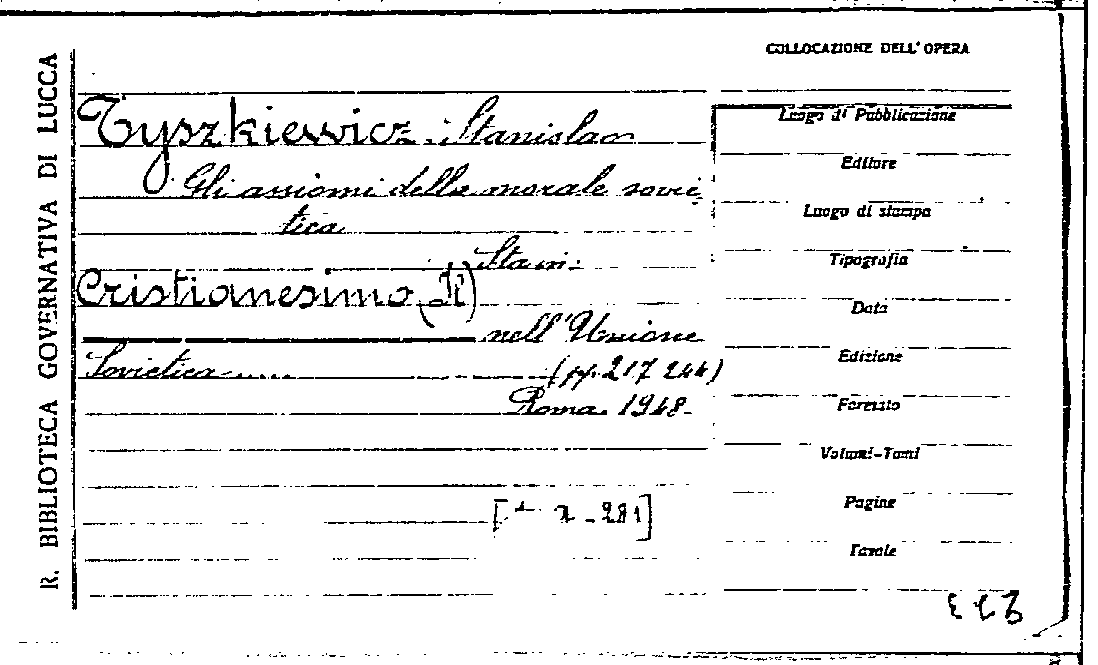 R. BIBLIOTECA GOVERNATIVA DI LUCCA
COLLOCAZIONE DELL'OPERA
Tyszkiewicz Stanislao
Gli assiomi della morale sovie-
tica
Sta in:
Cristianesimo (Il)
nell'Unione
Sovietica.....
(pp. 217 244)
Roma. 1948.
Luogo di Pubblicazione
Editore
Luogo di stampa
Tipografia
Data
Edizione
Formato
Volumi-Tomi
Pagine
Tavole